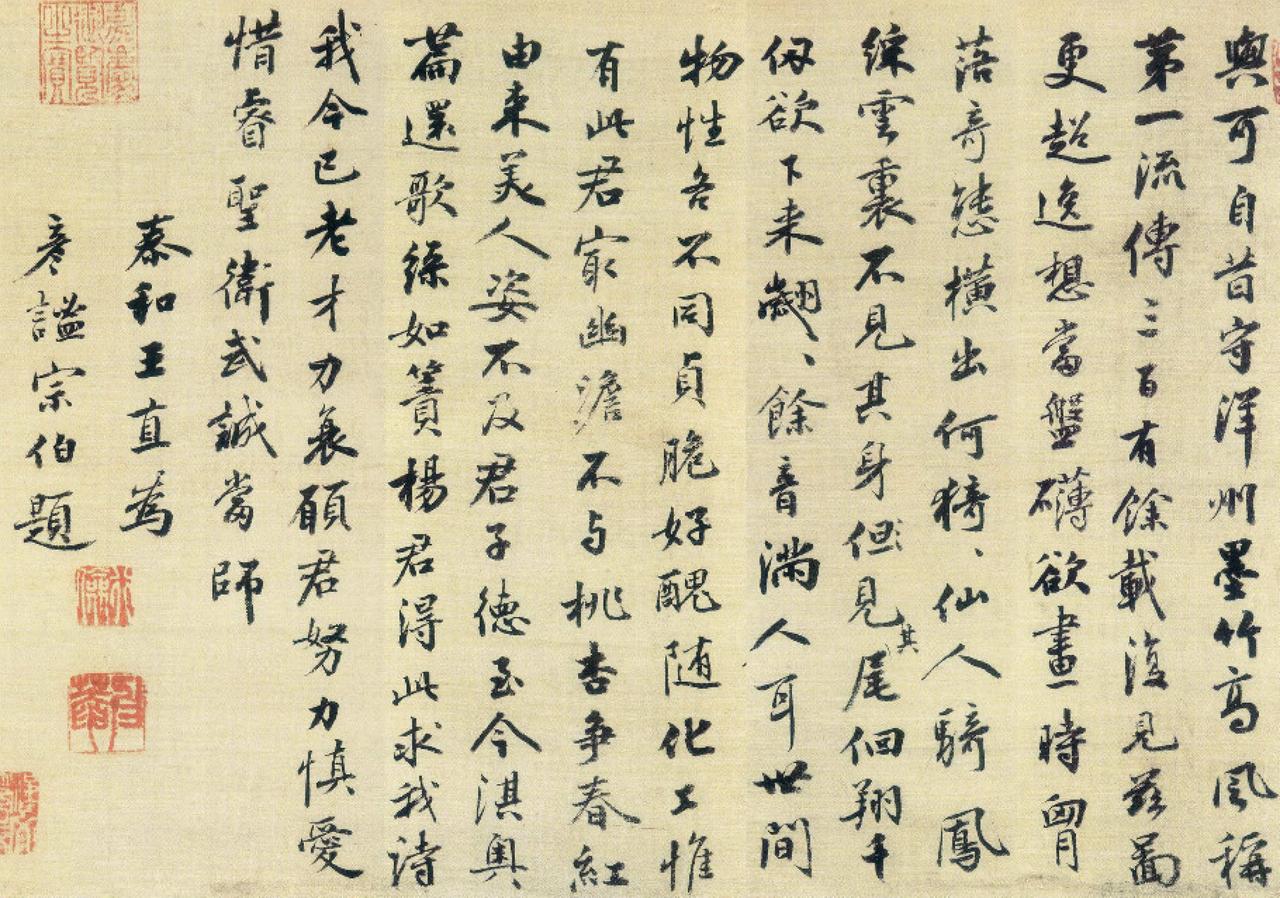 與可自昔守洋州墨竹高風稱
第一流傳三百有餘載復見茲圖
更超逸想當盤礴欲畫時胷
蓓奇態橫出何猗、仙人騎鳳
綵雲裏不見其身但見其尾佪翔千
仭欲下来翽、餘音满人耳世間
物性各不同貞脆好醜随化工惟
有此君寂幽澹不与桃杏争春紅
由来美人姿不及君子德至今淇奥
篇還歌緑如簀楊君得此求我詩
我今已老才力衰願君努力慎愛
惜睿聖衛武誠當師
泰和王直為
彦謐宗伯題